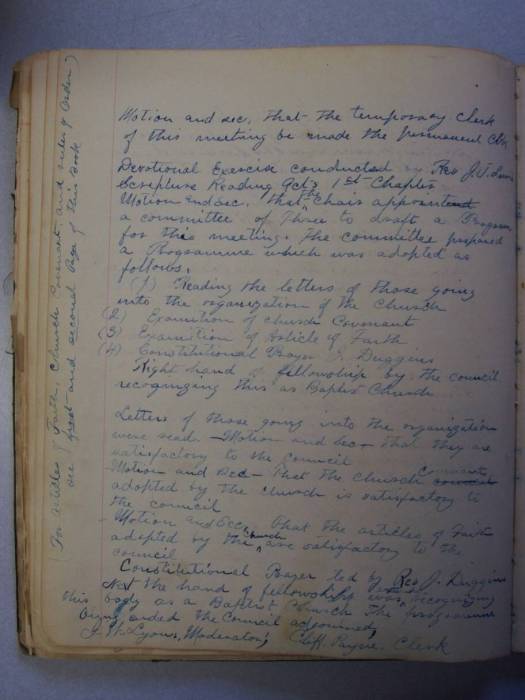 Motion and sec. that the temporary clerk
of this meeting be made the permanent
Devotional Exercise conducted by Rev J.
Scripture Reading Acts 1st Chapter
Motion and sec. that the Chair appointed
a committee of three to draft a Program
for this meeting. The committee prepared
a Programme which was adopted as
follows.
(1) Reading the letters of those going
into the organization of the Church
(2) Examition of church Covenant
(3) Examition of Article of Faith
(4) Constitutional Prayer J. Duggins
Right hand of fellowship by the council
recognizing this as Baptist Church
Letters of those going into the organization
were read. Motion and sec - that they are
satisfactory to the council
Motion and Sec - that the church Covenant
adopted by the church is satisfactory to
the council
Motion and Sec. that the articles of Faith
adopted by the church are satisfactory to the
council
Constitutional Prayer led by Rev J. Duggins
the hand of fellowship was recognizing
this body as a Baptist Church The programme
being ended the Council adjourned,
J. W. Lyons, Moderator; Cliff. Payne, Clerk
(For articles of Faith, Church Covenant and rules of Order
see first and second Page of this Book)